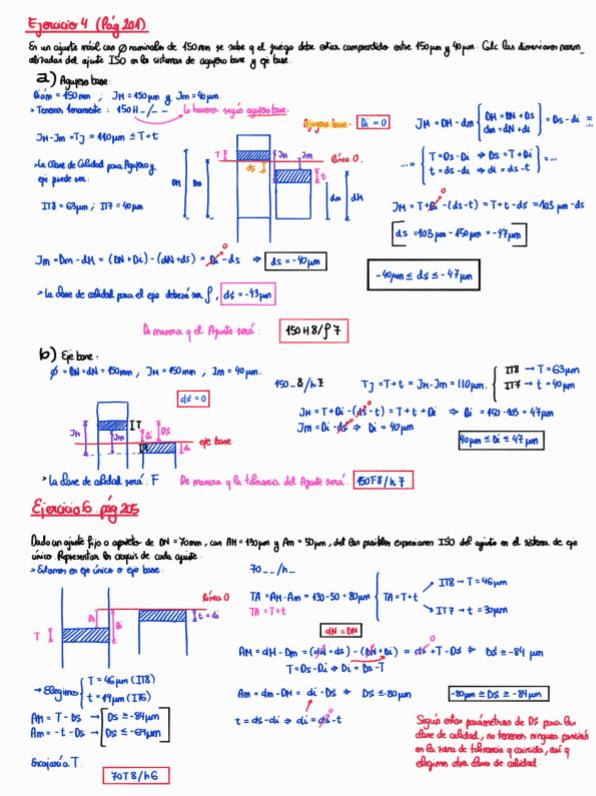 Ejercicio 4 (Pág 201)
En un ajuste móvil con Ø nominales de 150mm se sabe q el juego debe estar comprendido entre 150μm y 40μm. Calc las dimensiones norm_
alizadas del ajuste ISO en los sistemas de agujero base y eje base.
a) Agujero base:
Diám = 150mm ; JM = 150μm y Jm = 40μm.
> Tenemos : 150H_/_ _ Lo hacemos según agujero base.
Agujero base. Di = 0
JM = DH - dm { DH = DN + Ds
dm = dN + di } = Ds - di =
JM - Jm = Tj = 110μm ≤ T+t
... = { T = Ds - Di ⇒ Ds = T + Di
t = ds - di ⇒ di = ds - t } = ...
> La Clase de Calidad para Agujero y
eje puede ser:
T JM Jm línea 0.
ds t
DH Dm dm dH
IT8 = 63μm ; IT7 = 40μm
JM = T + Di - (ds - t) = T + t - ds = 103μm - ds
ds = 103μm - 150μm = -47μm
Jm = Dm - dH = (DN + Di) - (dN + ds) = Di - ds ⇒ ds = -40μm
-40μm ≤ ds ≤ -47μm
> La clase de calidad para el eje deberá ser f, ds = -43μm
De manera q el Ajuste será: 150H8/f7
b) Eje base:
Ø = DN = dN = 150mm , JM = 150μm , Jm = 40μm.
ds = 0
150_8/h7
TJ = T+t = JM - Jm = 110μm. { IT8 → T = 63μm
IT7 → t = 40μm
JM = T + Di - (ds - t) = T + t + Di ⇒ Di = 150 - 103 = 47μm
Jm = Di - ds ⇒ Di = 40μm
40μm ≤ Di ≤ 47μm
JM Jm IT Di Ds eje base
> La clase de calidad será: F De manera q la tolerancia del Ajuste será: 150F8/h7
Ejercicio 6 pág 205
Dado un ajuste fijo o aprieto de DN = 70mm, con AM = 130μm y Am = 50μm, det las posibles expresiones ISO del ajuste en el sistema de eje
único. Representar los croquis de cada ajuste.
> Estamos en eje único o eje base:
70_ _/h_
línea 0
T Ds Di t = di
TA = AM - Am = 130 - 50 = 80μm
TA = T+t
TA = T+t
IT8 → T = 46μm
IT7 → t = 30μm
dN = DN
AM = dH - Dm = (dN + ds) - (DN + Di) = ds + T - Ds ⇒ Ds ≥ -84 μm
T = Ds - Di ⇒ Di = Ds - T
→ Elegimos { T = 46μm (IT8)
t = 19μm (IT6)
Am = dm - DH = di - Ds ⇒ Ds ≤ -80μm
-80μm ≥ Ds ≥ -84μm
AM = T - Ds → Ds ≥ -84μm
Am = -t - Ds → Ds ≤ -69μm
t = ds - di ⇒ di = ds - t
Según estos parámetros de Ds para las
clase de calidad, no tenemos ninguna posición
en la zona de tolerancia q coincida, así q
elegimos otra clase de calidad.
Encajaría T.
70T8/h6